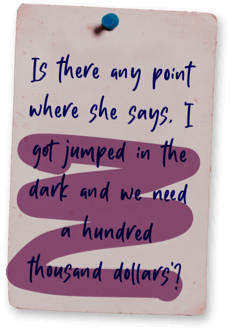 Is there any point
where she says. I
got jumped in the
dark and we need
a hundred
thousand dollars'?